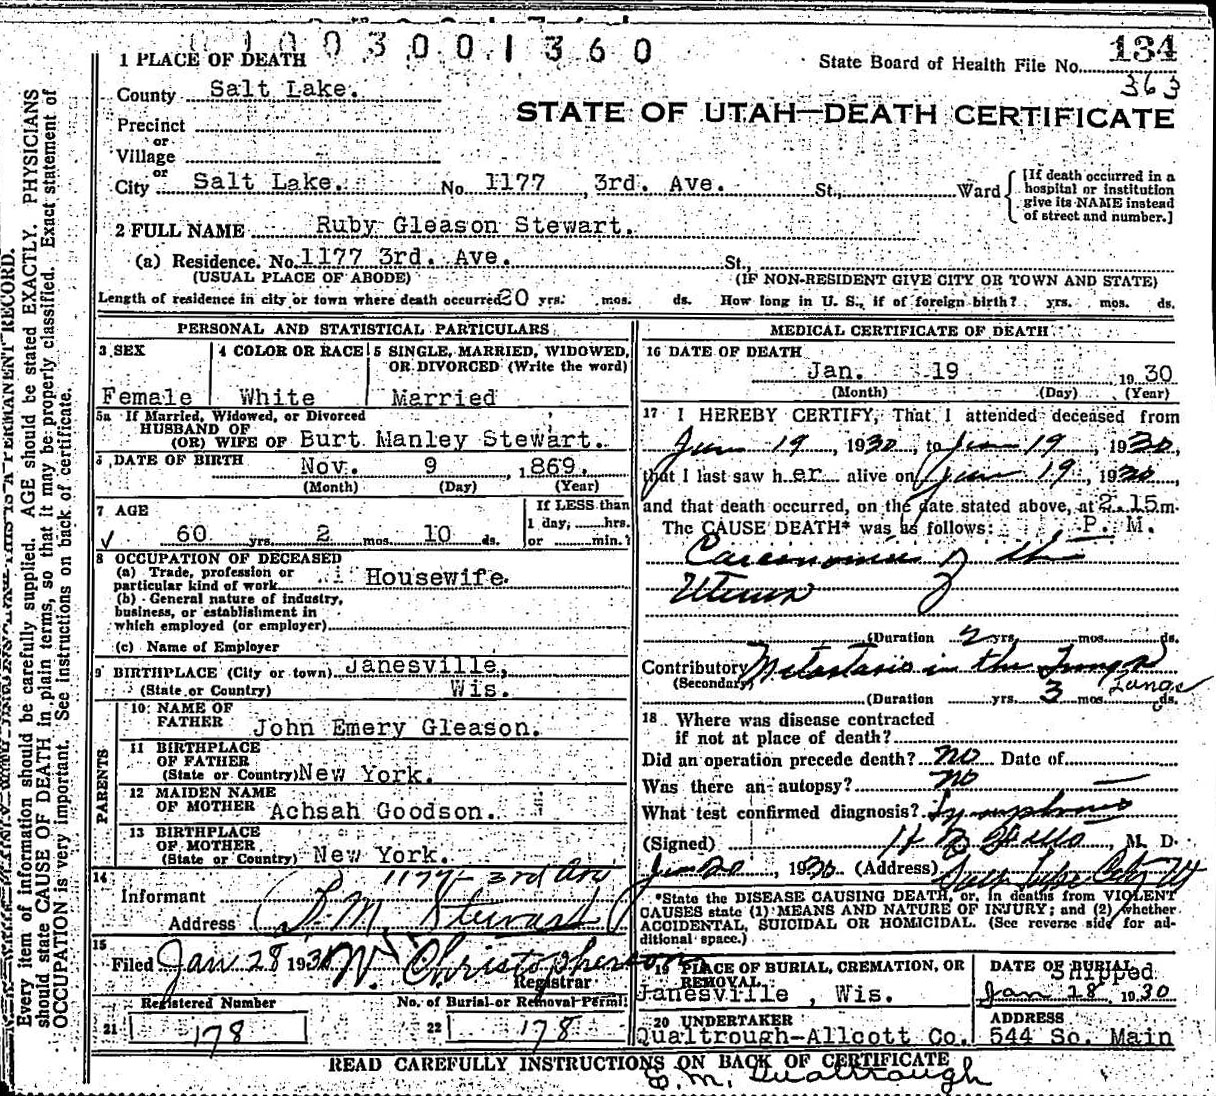 1003001360
134
1 PLACE OF DEATH
State Board of Health File No.
363
County Salt Lake.
STATE OF UTAH—DEATH CERTIFICATE
Precinct
or
Village
or
City Salt Lake. No. 1177 3rd. Ave. St., Ward
[If death occurred in a hospital or institution give its NAME instead of street and number.]
2 FULL NAME Ruby Gleason Stewart.
(a) Residence. No. 1177 3rd. Ave. St.,
(USUAL PLACE OF ABODE) (IF NON-RESIDENT GIVE CITY OR TOWN AND STATE)
Length of residence in city or town where death occurred 20 yrs. mos. ds. How long in U. S., if of foreign birth? yrs. mos. ds.
PERSONAL AND STATISTICAL PARTICULARS
3 SEX
Female
4 COLOR OR RACE
White
5 SINGLE, MARRIED, WIDOWED, OR DIVORCED (Write the word)
Married
5a If Married, Widowed, or Divorced
HUSBAND OF
(OR) WIFE OF Burt Manley Stewart.
6 DATE OF BIRTH Nov. 9 , 1869.
(Month) (Day) (Year)
7 AGE
60 yrs. 2 mos. 10 ds.
If LESS than
1 day, hrs.
or min.?
8 OCCUPATION OF DECEASED
(a) Trade, profession or
particular kind of work Housewife.
(b) General nature of industry,
business, or establishment in
which employed (or employer)
(c) Name of Employer
9 BIRTHPLACE (City or town) Janesville,
(State or Country) Wis.
PARENTS
10 NAME OF
FATHER John Emery Gleason.
11 BIRTHPLACE
OF FATHER
(State or Country) New York.
12 MAIDEN NAME
OF MOTHER Achsah Goodson.
13 BIRTHPLACE
OF MOTHER
(State or Country) New York.
14
1177- 3rd Ave
Informant
Address B. M. Stewart
15
Filed Jan 28 1930 W. Christopherson
Registrar
Registered Number
21 178
No. of Burial or Removal Permit
22 178
MEDICAL CERTIFICATE OF DEATH
16 DATE OF DEATH
Jan. 19 19 30
(Month) (Day) (Year)
17 I HEREBY CERTIFY, That I attended deceased from
Jan 19, 1930, to Jan 19, 1930,
that I last saw h er alive on Jan 19, 1930,
and that death occurred, on the date stated above, at 2.15 m.
The CAUSE DEATH* was as follows: P. M.
Carcinoma of the
Uterus
(Duration 2 yrs. mos. ds.
Contributory Metastasis in the Lungs
(Secondary) Lungs
(Duration yrs. 3 mos. ds.
18 Where was disease contracted
if not at place of death?
Did an operation precede death? no Date of
Was there an autopsy? no
What test confirmed diagnosis? Symptoms
(Signed) M. D.
Jan 20, 1930 (Address) Salt Lake City Ut
*State the DISEASE CAUSING DEATH, or, in deaths from VIOLENT
CAUSES state (1) MEANS AND NATURE OF INJURY; and (2) whether
ACCIDENTAL, SUICIDAL OR HOMICIDAL. (See reverse side for ad-
ditional space.)
19 PLACE OF BURIAL, CREMATION, OR
REMOVAL
Janesville, Wis.
DATE OF BURIAL
Shipped
Jan 28 1930
20 UNDERTAKER
Qualtrough-Allcott Co.
ADDRESS
544 So. Main
READ CAREFULLY INSTRUCTIONS ON BACK OF CERTIFICATE
E. M. Qualtrough
Every item of information should be carefully supplied. AGE should be stated EXACTLY. PHYSICIANS
should state CAUSE OF DEATH in plain terms, so that it may be properly classified. Exact statement of
OCCUPATION is very important. See instructions on back of certificate.
THIS IS A PERMANENT RECORD.